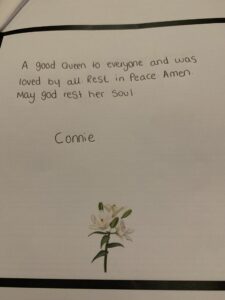 A good Queen to everyone and was
loved by all Rest in Peace Amen.
May god rest her soul
Connie